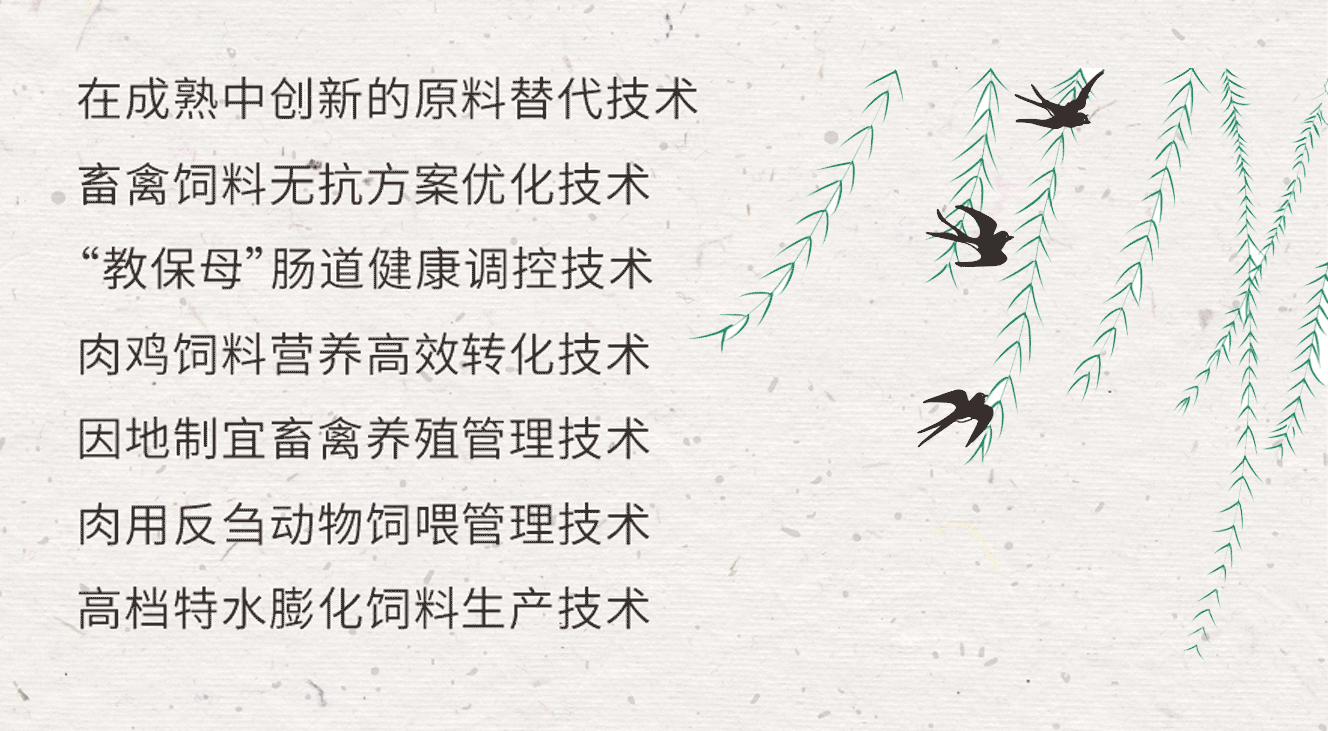 在成熟中创新的原料替代技术
畜禽饲料无抗方案优化技术
“教保母”肠道健康调控技术
肉鸡饲料营养高效转化技术
因地制宜畜禽养殖管理技术
肉用反刍动物饲喂管理技术
高档特水膨化饲料生产技术